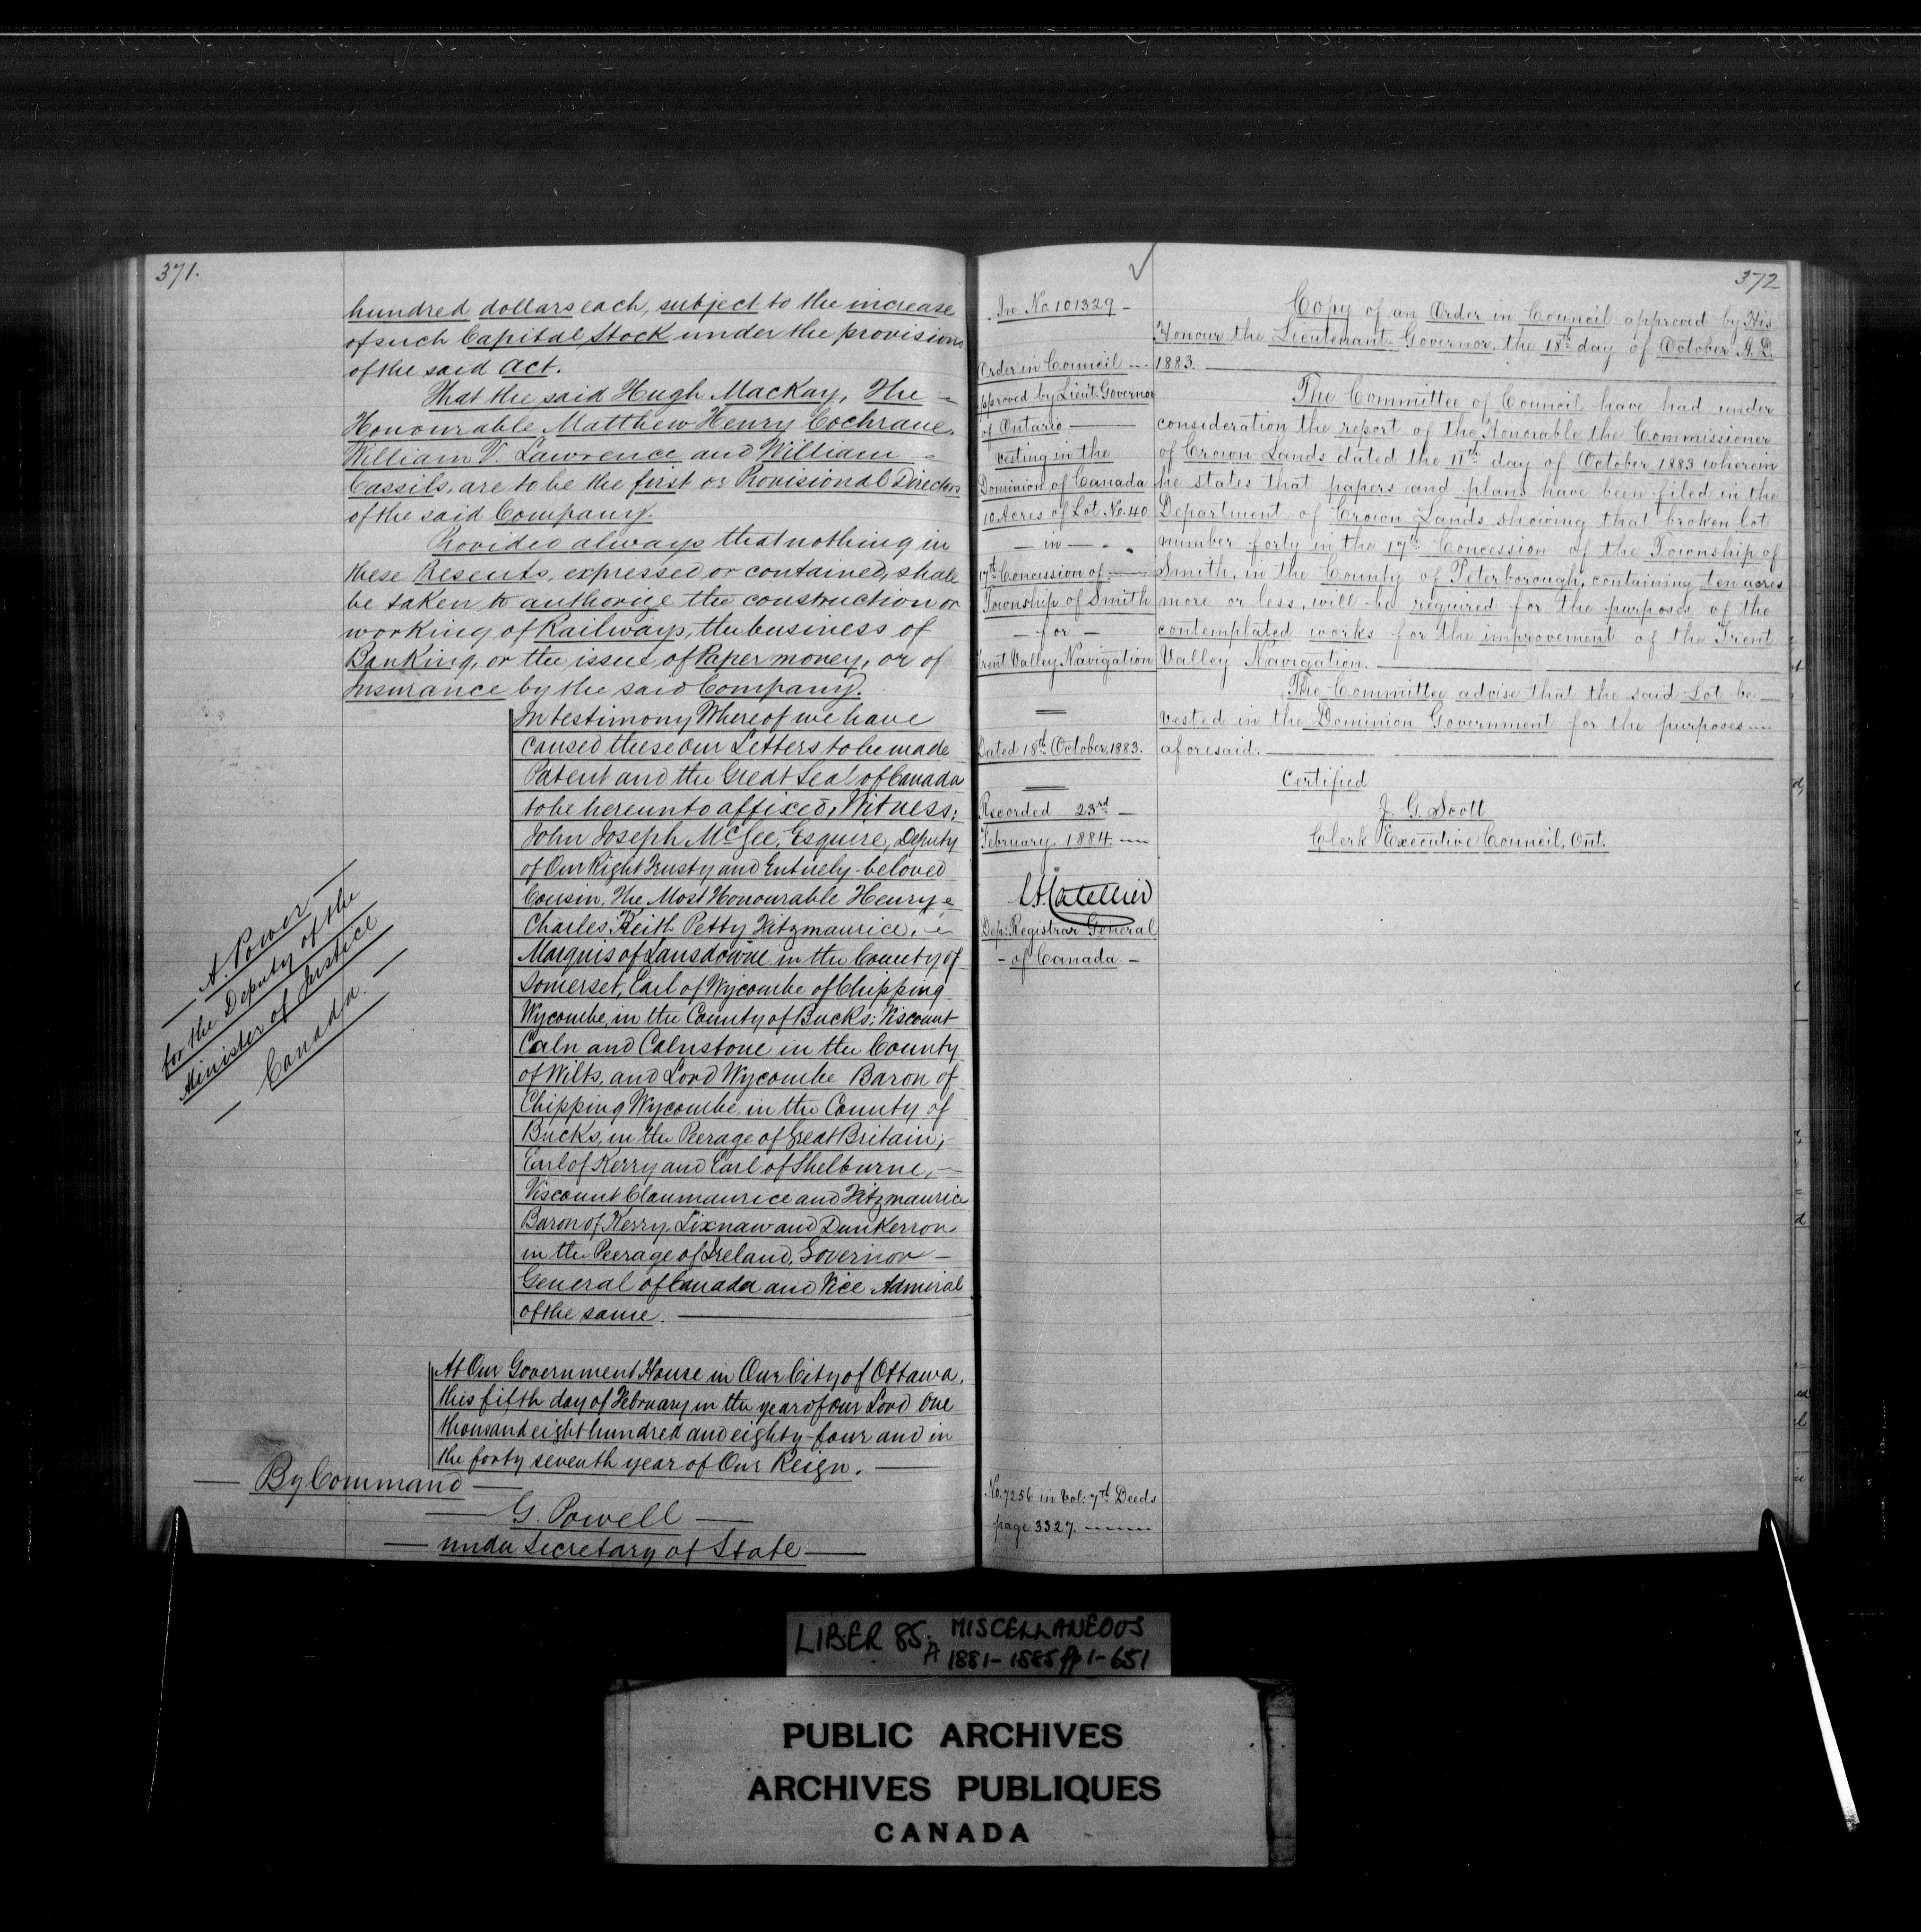 371.
hundred dollars each, subject to the increase
of such Capital Stock under the provisions
of the said Act.
That the said Hugh MacKay, The
Honourable Matthew Henry Cochrane,
William V. Lawrence and William
Cassils, are to be the first or Provisional Directors
of the said Company.
Provided always that nothing in
these Presents, expressed or contained, shall
be taken to authorize the construction or
working of Railways, the business of
Banking, or the issue of Paper money, or of
Insurance by the said Company.
In testimony Whereof we have
caused these our Letters to be made
Patent and the Great Seal of Canada
to be hereunto affixed, Witness;
John Joseph McGee, Esquire, Deputy
of Our Right Trusty and Entirely-beloved
Cousin, The Most Honourable Henry
Charles Keith Petty Fitzmaurice,
Marquis of Lansdowne in the County of
Somerset, Earl of Wycombe of Chipping
Wycombe, in the County of Bucks; Viscount
Caln and Calnstone in the County
of Wilts, and Lord Wycombe Baron of
Chipping Wycombe, in the County of
Bucks, in the Peerage of Great Britain;
Earl of Kerry and Earl of Shelburne,
Viscount Clanmaurice and Fitzmaurice
Baron of Kerry, Lixnaw and Dunkerron
in the Peerage of Ireland, Governor
General of Canada and Vice Admiral
of the same.
A. Power
for the Deputy of the
Minister of Justice
Canada.
At Our Government House in Our City of Ottawa,
this fifth day of February in the year of Our Lord One
thousand eight hundred and eighty-four and in
the forty seventh year of Our Reign.
By Command
G. Powell
under Secretary of State
372
In No. 101329
Order in Council
approved by Lieut. Governor
of Ontario
vesting in the
Dominion of Canada
10 Acres of Lot No. 40
in
17th Concession of
Township of Smith
for
Trent Valley Navigation
Dated 18th October, 1883.
Recorded 23rd
February, 1884.
Dep: Registrar General
of Canada.
No. 7256 in Vol: 7th Deeds
page 3327.
Copy of an Order in Council approved by His
Honour the Lieutenant-Governor, the 18th day of October A.D.
1883.
The Committee of Council have had under
consideration the report of the Honorable the Commissioner
of Crown Lands dated the 11th day of October 1883 wherein
he states that papers and plans have been filed in the
Department of Crown Lands showing that broken lot
number forty in the 17th Concession of the Township of
Smith, in the County of Peterborough, containing ten acres
more or less, will be required for the purposes of the
contemplated works for the improvement of the Trent
Valley Navigation.
The Committee advise that the said Lot be
vested in the Dominion Government for the purposes
aforesaid.
Certified
J. G. Scott
Clerk Executive Council, Ont.
LIBER 85A MISCELLANEOUS
1881-1885 pp 1-651
PUBLIC ARCHIVES
ARCHIVES PUBLIQUES
CANADA